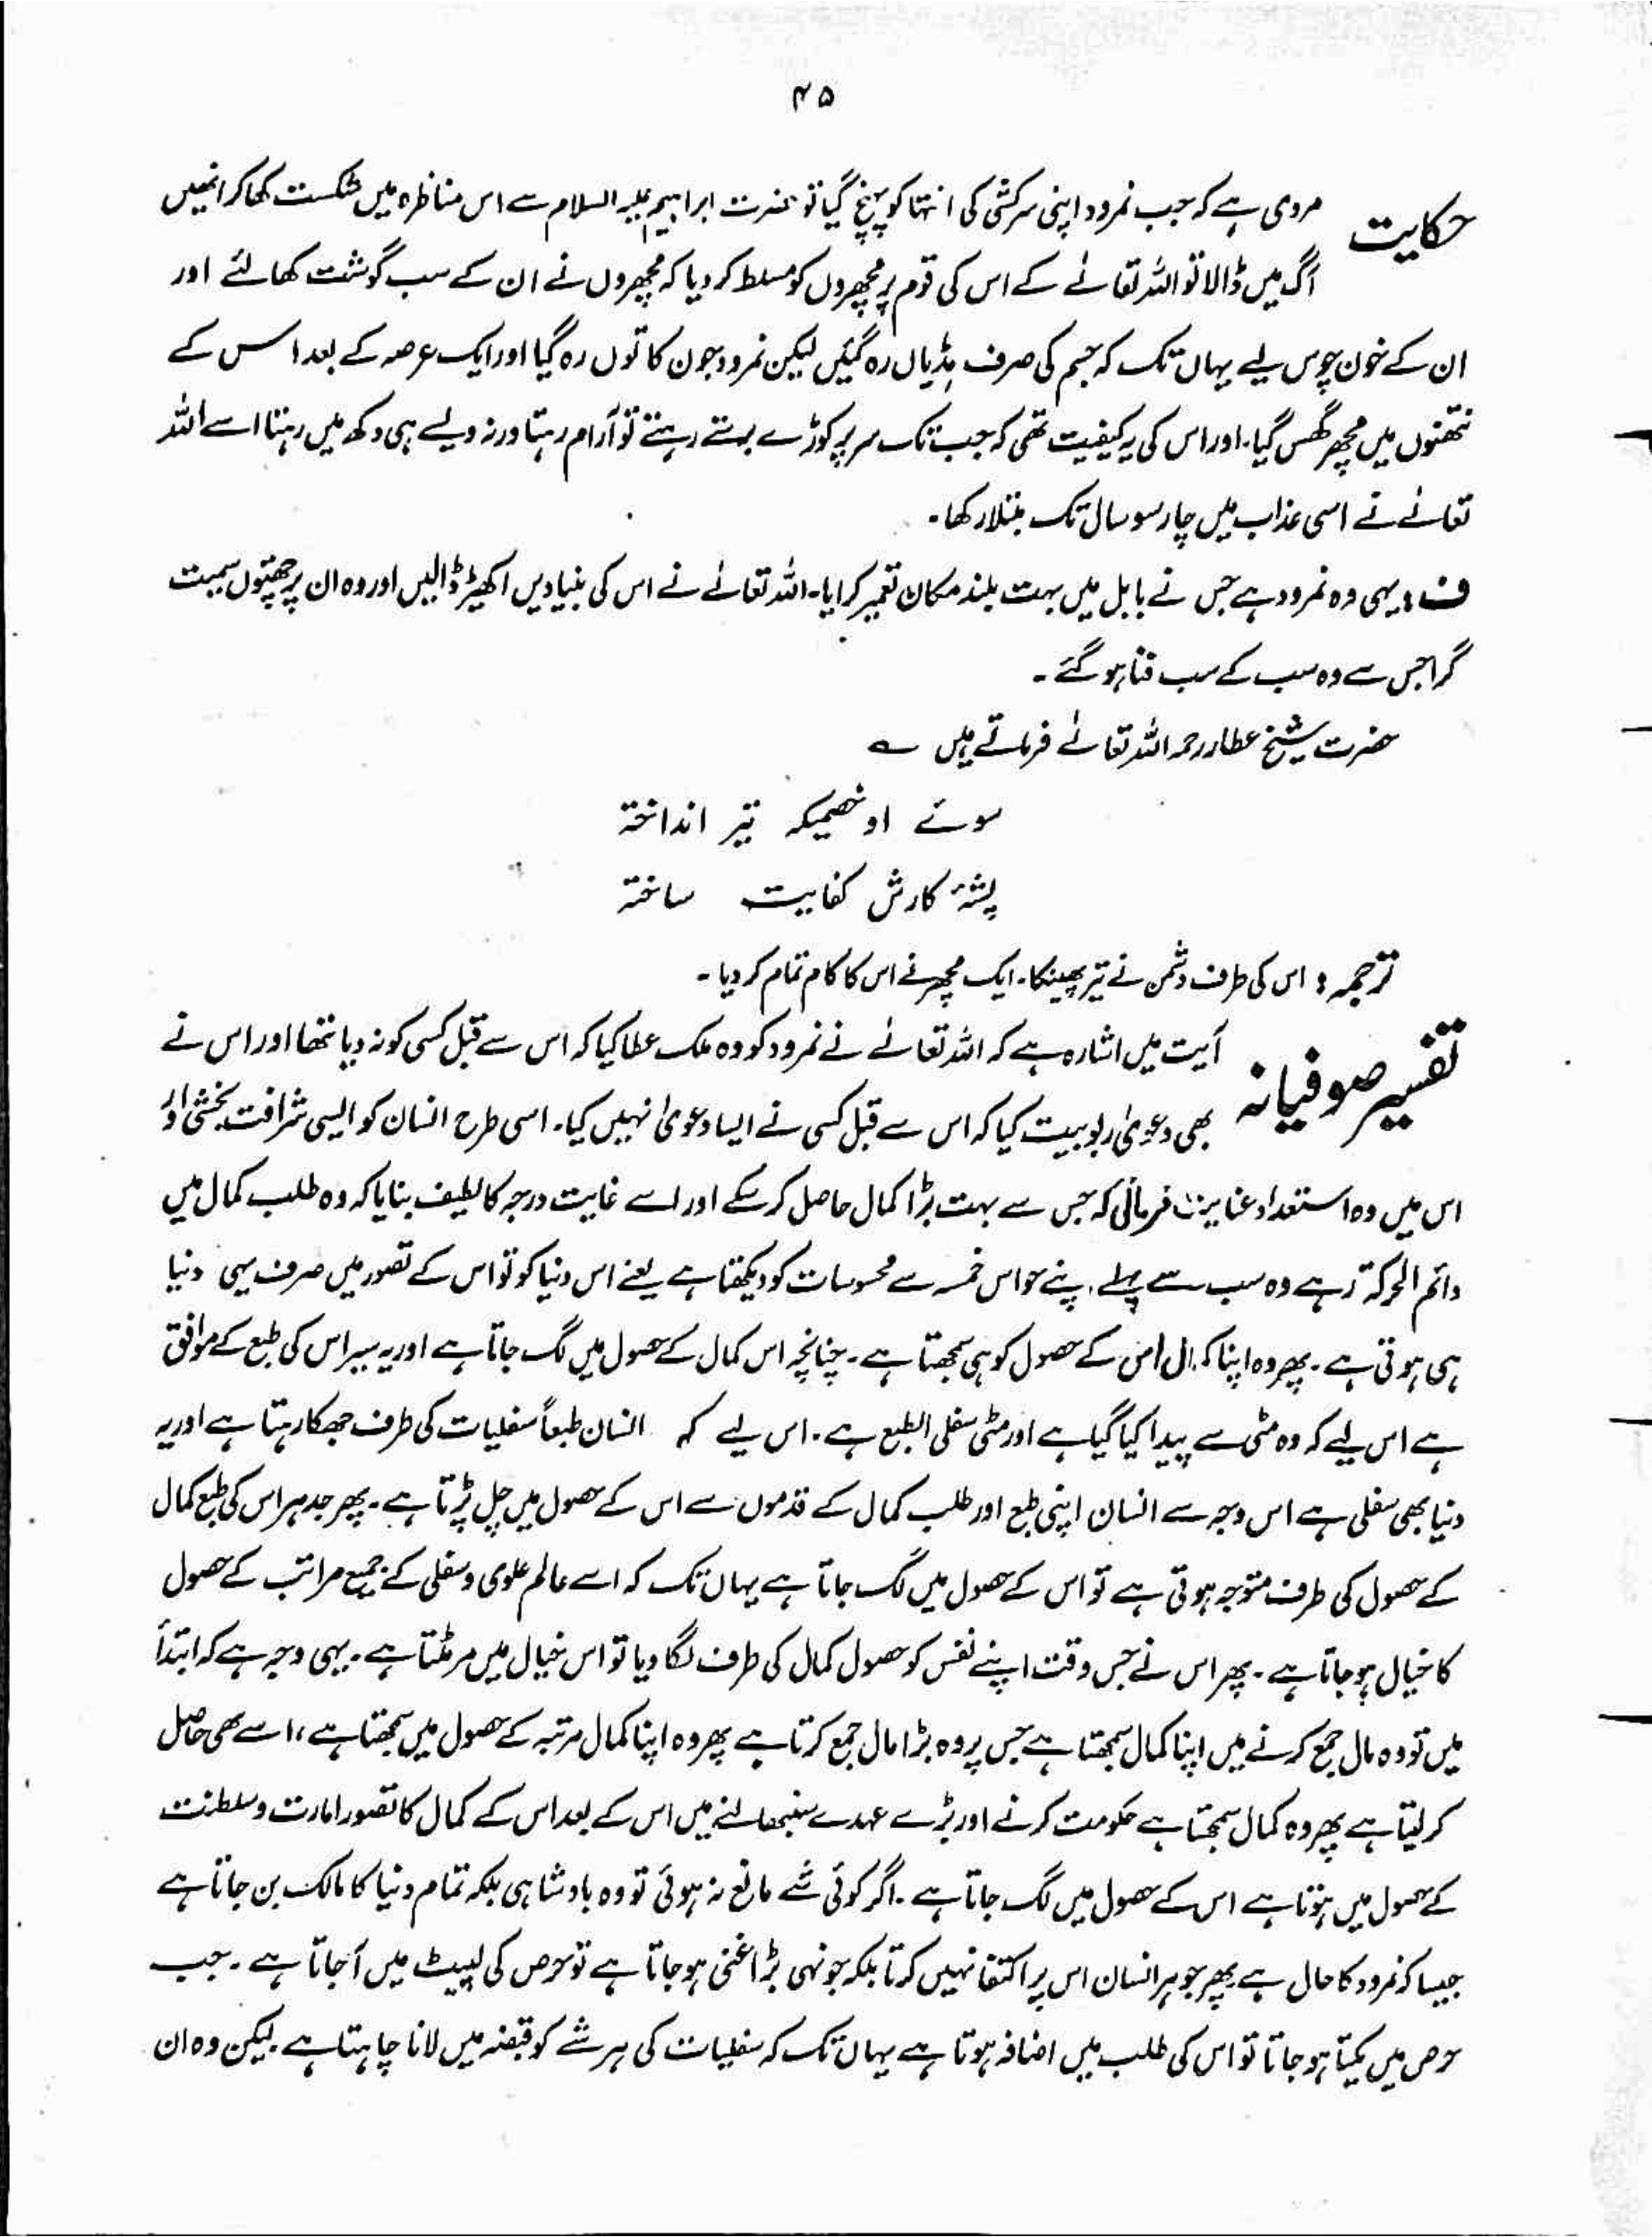 ۴۵
حکایت مروی ہے کہ جب نمرود اپنی سرکشی کی انتہا کو پہنچ گیا تو حضرت ابراہیم علیہ السلام سے اس مناظرہ میں شکست کھا کر انھیں
آگ میں ڈالا تو اللہ تعالےٰ کے اس کی قوم پر مچھروں کو مسلط کر دیا کہ مچھروں نے ان کے سب گوشت کھا لئے اور
ان کے خون چوس لیے یہاں تک کہ جسم کی صرف ہڈیاں رہ گئیں لیکن نمرود جون کا توں رہ گیا اور ایک عرصہ کے بعد اس کے
نتھنوں میں مچھر گھس گیا۔ اور اس کی یہ کیفیت تھی کہ جب تک سر پر کوڑے برستے رہتے تو آرام رہتا ورنہ ویسے ہی دکھ میں رہتا اسے اللہ
تعالےٰ نے اسی عذاب میں چار سو سال تک مبتلا رکھا۔
ف : یہی وہ نمرود ہے جس نے بابل میں بہت بلند مکان تعمیر کرایا۔ اللہ تعالےٰ نے اس کی بنیادیں اکھیڑ ڈالیں اور وہ ان پر چھتوں سمیت
گرا جس سے وہ سب کے سب فنا ہو گئے ۔
حضرت شیخ عطار رحمہ اللہ تعالےٰ فرماتے ہیں ؎
سوئے او خصمیکہ تیر انداختہ
پشۂ کارش کفایت ساختہ
ترجمہ : اس کی طرف دشمن نے تیر پھینکا۔ ایک مچھر نے اس کا کام تمام کر دیا ۔
تفسیر صوفیانہ آیت میں اشارہ ہے کہ اللہ تعالےٰ نے نمرود کو وہ ملک عطا کیا کہ اس سے قبل کسی کو نہ دیا تھا اور اس نے
بھی دعویٰ ربوبیت کیا کہ اس سے قبل کسی نے ایسا دعویٰ نہیں کیا۔ اسی طرح انسان کو ایسی شرافت بخشی اور
اس میں وہ استعداد عنایت فرمائی کہ جس سے بہت بڑا کمال حاصل کر سکے اور اسے غایت درجہ کا لطیف بنایا کہ وہ طلب کمال میں
دائم الحرکۃ رہے وہ سب سے پہلے اپنے حواس خمسہ سے محسوسات کو دیکھتا ہے یعنے اس دنیا کو تو اس کے تصور میں صرف یہی دنیا
ہی ہوتی ہے ۔ پھر وہ اپنا کمال اس کے حصول کو ہی سمجھتا ہے ۔ چنانچہ اس کمال کے حصول میں لگ جاتا ہے اور یہ سیر اس کی طبع کے موافق
ہے اس لیے کہ وہ مٹی سے پیدا کیا گیا ہے اور مٹی سفلی الطبع ہے ۔ اس لیے کہ انسان طبعاً سفلیات کی طرف جھکا رہتا ہے اور یہ
دنیا بھی سفلی ہے اس وجہ سے انسان اپنی طبع اور طلب کمال کے قدموں سے اس کے حصول میں چل پڑتا ہے ۔ پھر جدہر اس کی طبع کمال
کے حصول کی طرف متوجہ ہوتی ہے تو اس کے حصول میں لگ جاتا ہے یہاں تک کہ اسے عالم علوی و سفلی کے جمیع مراتب کے حصول
کا خیال ہو جاتا ہے ۔ پھر اس نے جس وقت اپنے نفس کو حصول کمال کی طرف لگا دیا تو اس خیال میں مر مٹتا ہے ۔ یہی وجہ ہے کہ ابتدأ
میں تو وہ مال جمع کرنے میں اپنا کمال سمجھتا ہے جس پر وہ بڑا مال جمع کرتا ہے پھر وہ اپنا کمال مرتبہ کے حصول میں سمجھتا ہے ، اسے بھی حاصل
کر لیتا ہے پھر وہ کمال سمجھتا ہے حکومت کرنے اور بڑے عہدے سنبھالنے میں اس کے بعد اس کے کمال کا تصور امارت و سلطنت
کے حصول میں ہوتا ہے اس کے حصول میں لگ جاتا ہے ۔ اگر کوئی شے مانع نہ ہوئی تو وہ بادشاہی بلکہ تمام دنیا کا مالک بن جاتا ہے
جیسا کہ نمرود کا حال ہے پھر جوہر انسان اس پر اکتفا نہیں کرتا بلکہ جونہی بڑا غنی ہو جاتا ہے تو حرص کی لپیٹ میں آ جاتا ہے ۔ جب
حرص میں یکتا ہو جاتا تو اس کی طلب میں اضافہ ہوتا ہے یہاں تک کہ سفلیات کی ہر شے کو قبضہ میں لانا چاہتا ہے لیکن وہ ان